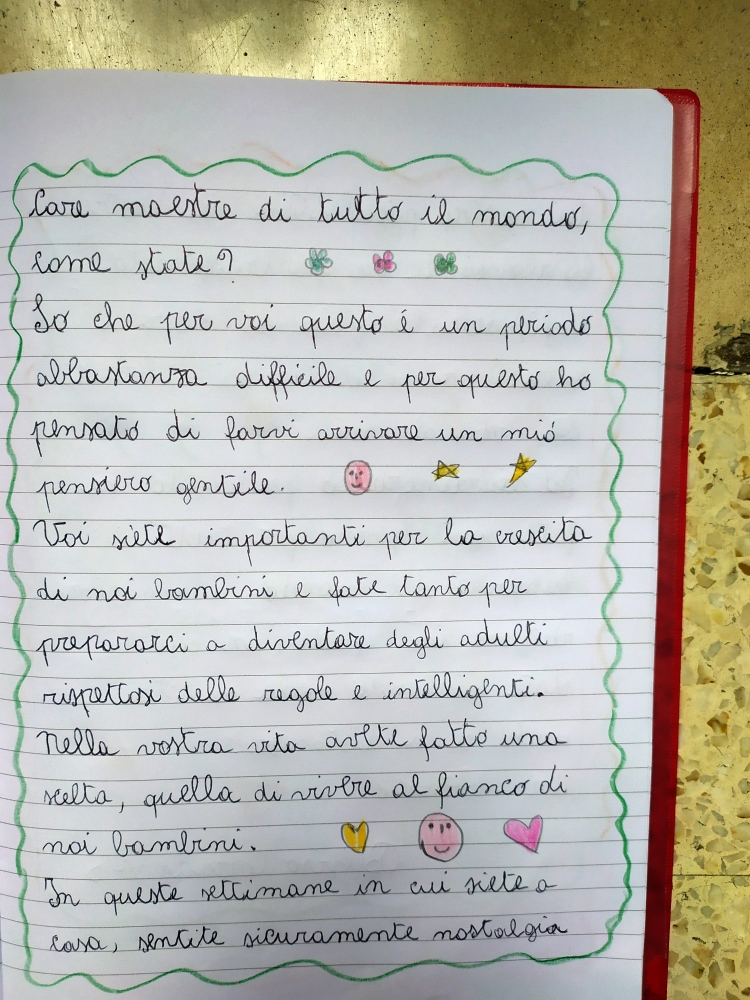 Care maestre di tutto il mondo,
come state?
So che per voi questo é un periodo
abbastanza difficile e per questo ho
pensato di farvi arrivare un mio
pensiero gentile.
Voi siete importanti per la crescita
di noi bambini e fate tanto per
prepararci a diventare degli adulti
rispettosi delle regole e intelligenti.
Nella vostra vita avete fatto una
scelta, quella di vivere al fianco di
noi bambini.
In queste settimane in cui siete a
casa, sentite sicuramente nostalgia